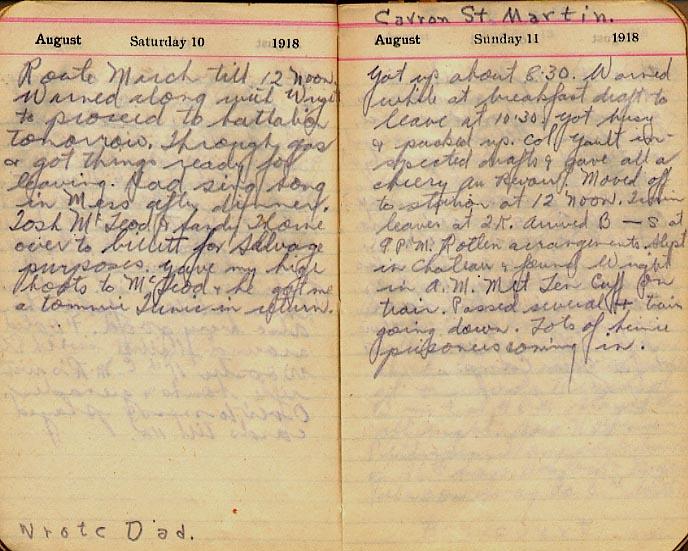 August Saturday 10 1918
Route March till 12 Noon.
Warned along with Wright
to proceed to battalion
tomorrow. Through gas
& got things ready for
leaving. Had sing song
in Mess after dinner.
Tosh McLeod & Sandy Horne
over to billett for Salvage
purposes. Gave my high
boots to McLeod & he got me
a tommie Tunic in return.
Wrote Dad.
Carron St. Martin.
August Sunday 11 1918
Got up about 8.30. Warned
while at breakfast draft to
leave at 10.30. Got busy
& packed up. Col Yault in-
spected drafts & gave all a
cheery Au Revoir. Moved off
to station at 12 Noon. Train
leaves at 2K. Arrived B — S at
9 P.M. Rotten arrangements. Slept
in Chateau & found Wright
in A.M. Met Len Cuff on
train. Passed several train
going down. Lots of heinie
prisoners coming in.